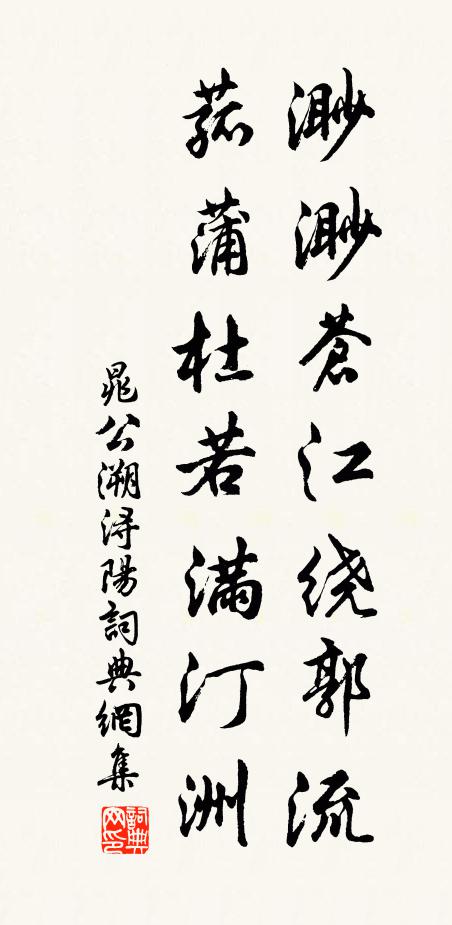 渺渺蒼江绕郭流
菰蒲杜若满汀洲
晁公溯浔陽詞典網集
詞典网印